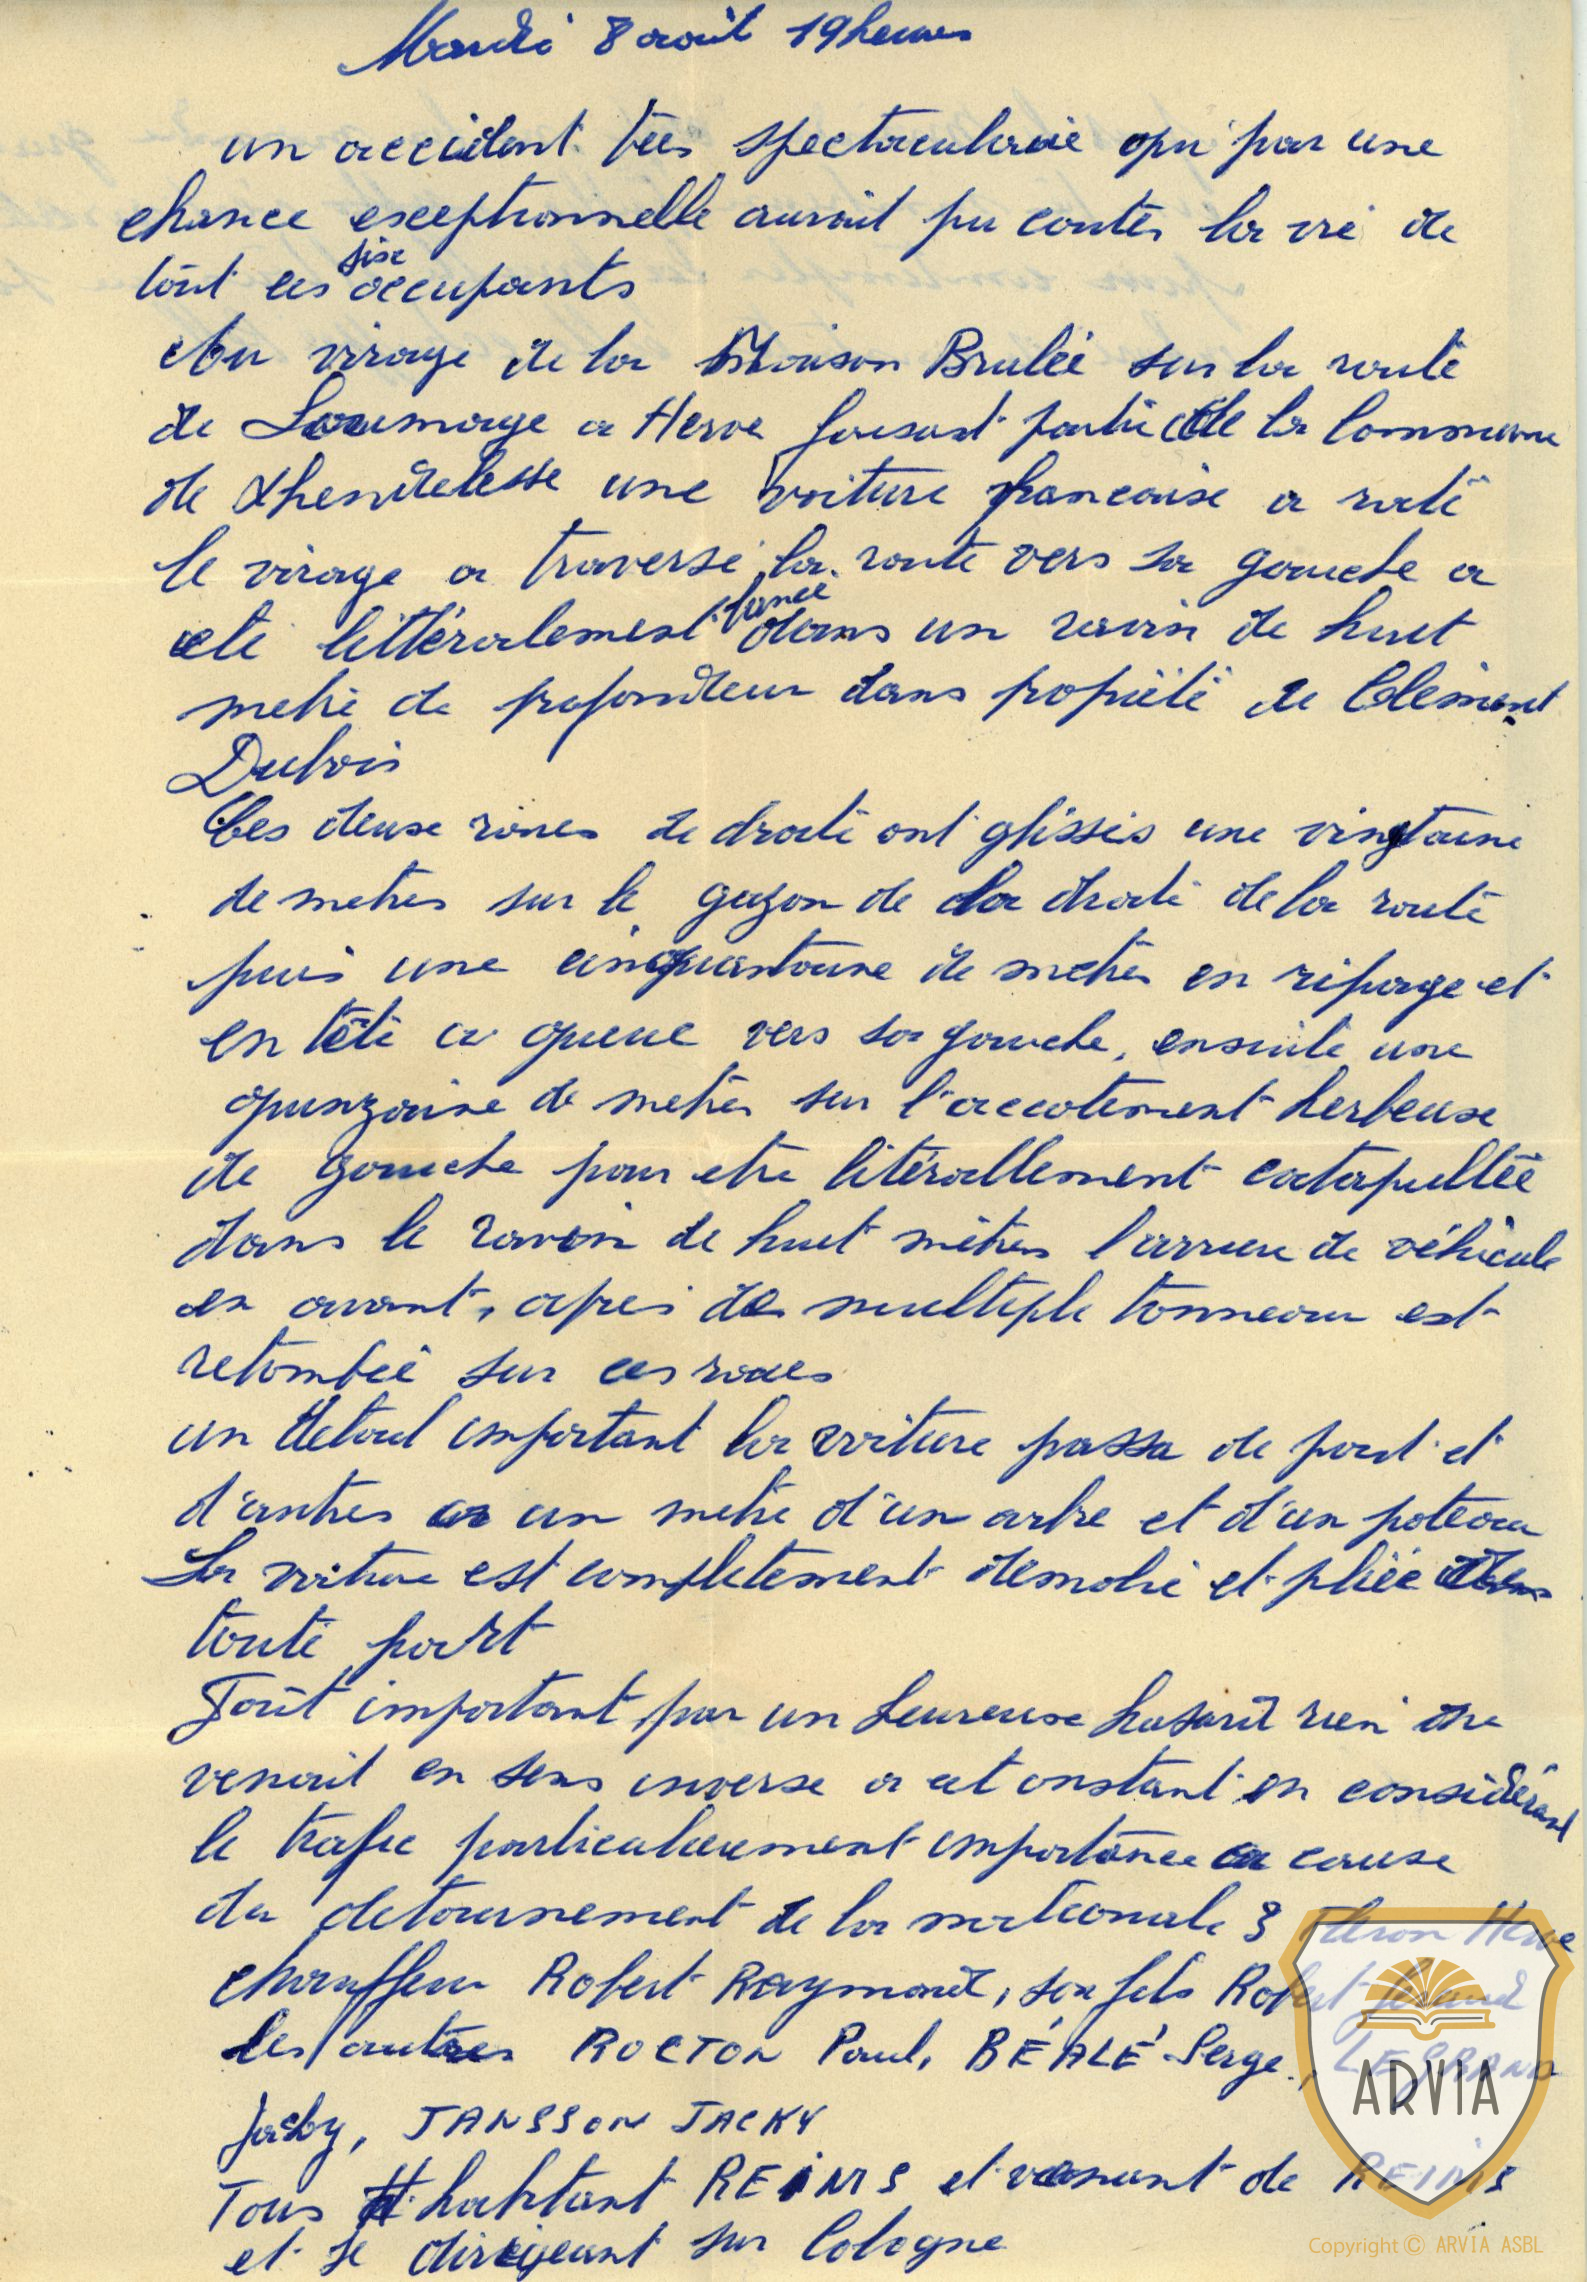 Mardi 8 août 19 heures
un accident très spectaculaire qui par une
chance exceptionnelle aurait pu couter la vie de
tout ces six occupants
Au virage de la Maison Brulée sur la route
de Soumagne a Herve faisant partie de la Commune
de Xhendelesse une voiture francaise a raté
le virage a traversé la route vers sa gauche a
été littéralement lancé dans un ravin de huit
metre de profondeur dans propiété de Clément
Dubois
Ces deux roues de droite ont glissés une vingtaine
de metres sur le gazon de la droite de la route
puis une cinquantaine de metres en ripage et
en tête a queue vers sa gauche, ensuite une
quinzaine de metres sur l'accotement herbeuse
de gauche pour etre litérallement catapultée
dans le ravin de huit mètres l'arriere de véhicule
en avant, apres de multiple tonneau est
retombée sur ces roues
un detail important la voiture passa de part et
d'autres a un metre d'un arbre et d'un poteau
La voiture est completement demolie et pliée de
toute part
Tout important par un heureuse hasard rien
venait en sens inverse a cet instant en considérant
le trafic particulierement importance a cause
du detournement de la nationale 3 Fleron Herve
chauffeur Robert Raymond, son fils Robert
les autres ROCTON Paul, BÉALÉ Serge, LEGRAND
Jacky, JANSSON JACKY
Tous habitant REIMS et venant de REIMS
et se dirigeant sur Cologne
ARVIA
Copyright © ARVIA ASBL